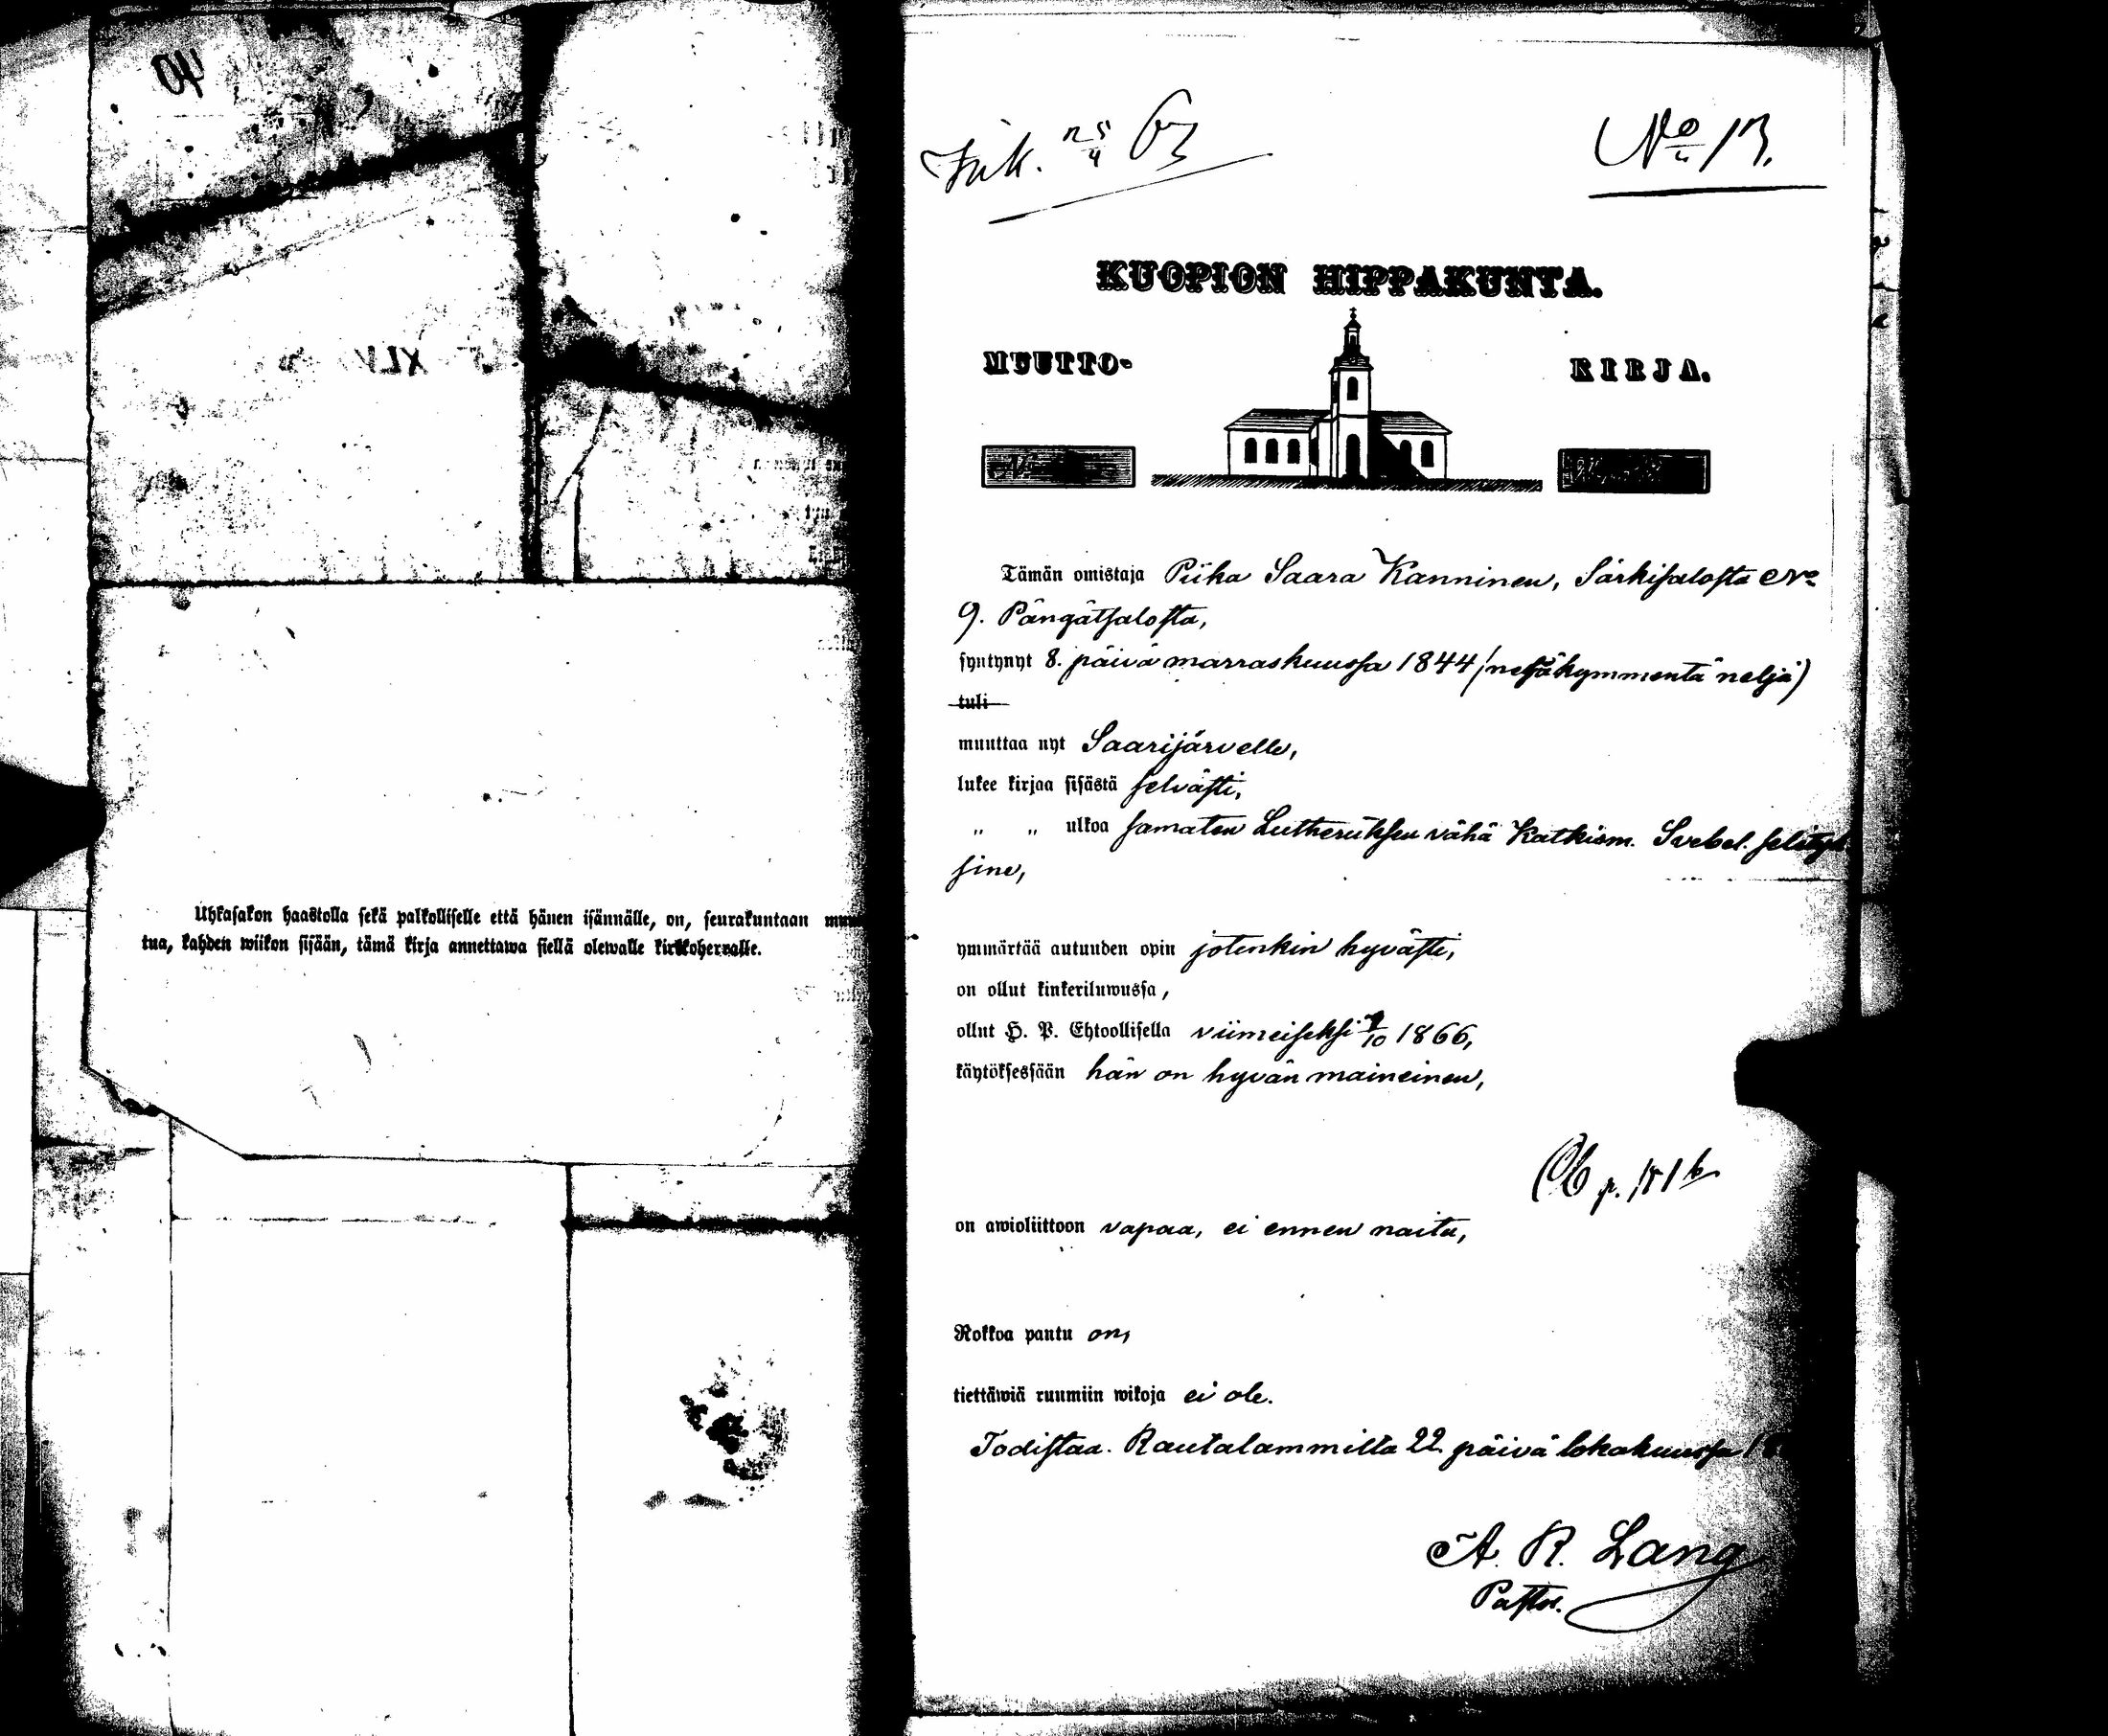 Uhkasakon haastolla sekä palkolliselle että hänen isännälle, on, seurakuntaan
tua, kahden wiikon sisään, tämä kirja annettawa siellä olewalle kirkkoherralle.
No 13.
KUOPION HIPPAKUNTA.
MUUTTO- KIRJA.
Tämän omistaja Piika Saara Kanninen, Särkisalosta No
9. Pängätsalosta,
syntynyt 8. päivä marraskuussa 1844 (neljäkymmentä neljä)
tuli
muuttaa nyt Saarijärvelle,
lukee kirjaa sisästä selvästi,
" " ulkoa samaten Lutheruksen vähä Katkism. Svebel. selityk
sine,
ymmärtää autuuden opin jotenkin hyvästi,
on ollut kinkeriluwussa,
ollut H. P. Ehtoollisella viimeiseksi /10 1866,
käytöksessään hän on hyvän maineinen,
on awioliittoon vapaa, ei ennen naitu,
Rokkoa pantu on,
tiettäwiä ruumiin wikoja ei ole.
Todistaa. Rautalammilta 22 päivä lokakuussa
A. R. Lang
Pastor.